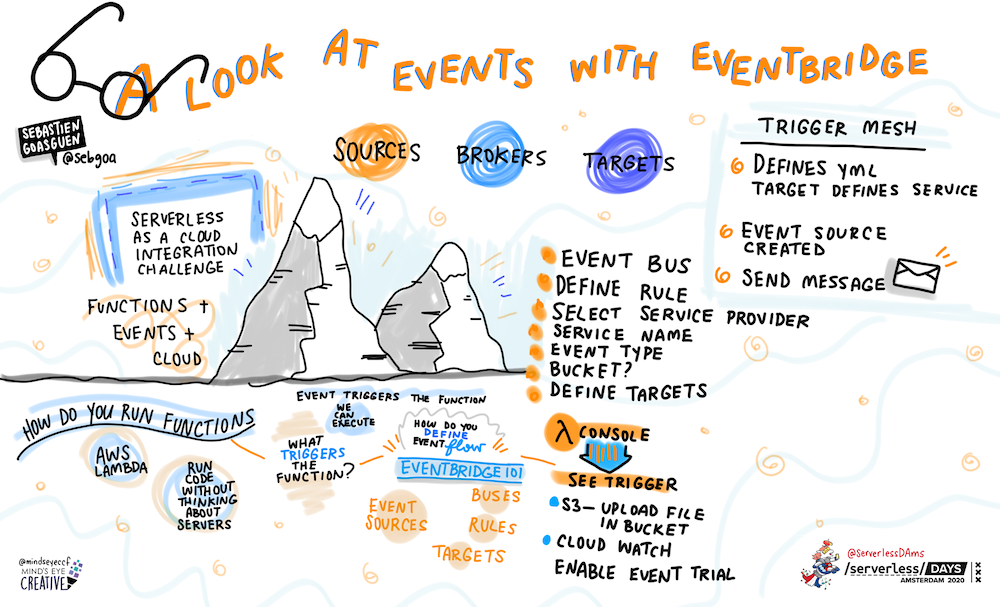 A LOOK AT EVENTS WITH EVENTBRIDGE
SEBASTIEN
GOASGUEN
@sebgoa
SOURCES
BROKERS
TARGETS
SERVERLESS
AS A CLOUD
INTEGRATION
CHALLENGE
FUNCTIONS +
EVENTS +
CLOUD
TRIGGER MESH
DEFINES YML
TARGET DEFINES SERVICE
EVENT SOURCE
CREATED
SEND MESSAGE
EVENT BUS
DEFINE RULE
SELECT SERVICE PROVIDER
SERVICE NAME
EVENT TYPE
BUCKET?
DEFINE TARGETS
HOW DO YOU RUN FUNCTIONS
AWS
LAMBDA
RUN
CODE
WITHOUT
THINKING
ABOUT
SERVERS
EVENT TRIGGERS THE FUNCTION
WE
CAN
EXECUTE
WHAT
TRIGGERS
THE
FUNCTION?
HOW DO YOU
DEFINE
EVENT flow
EVENTBRIDGE 101
EVENT
SOURCES
BUSES
RULES
TARGETS
λ CONSOLE
SEE TRIGGER
S3 — UPLOAD FILE
IN BUCKET
CLOUD WATCH
ENABLE EVENT TRIAL
@mindseyeccf
MIND'S EYE
CREATIVE
@ServerlessDAms
/serverless/ DAYS
AMSTERDAM 2020
XXX